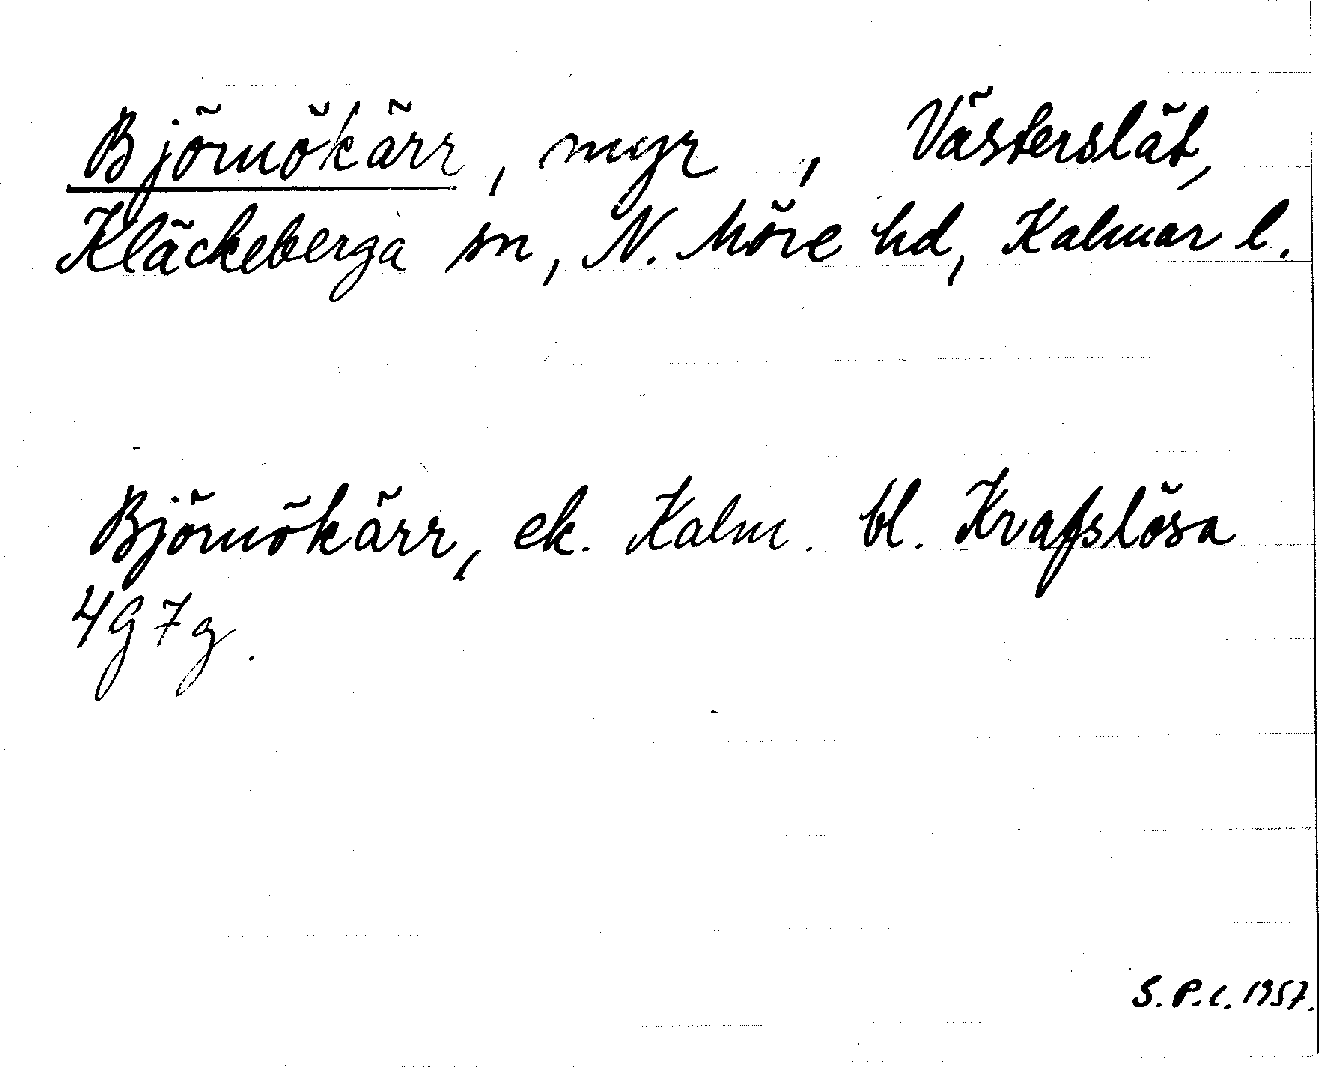 Björnökärr, myr, Västerslät,
Kläckeberga sn, N. Möre hd, Kalmar l.
Björnökärr, ek. Kalm. bl. Krafslösa
4G7g.
S.P.L. 1957.